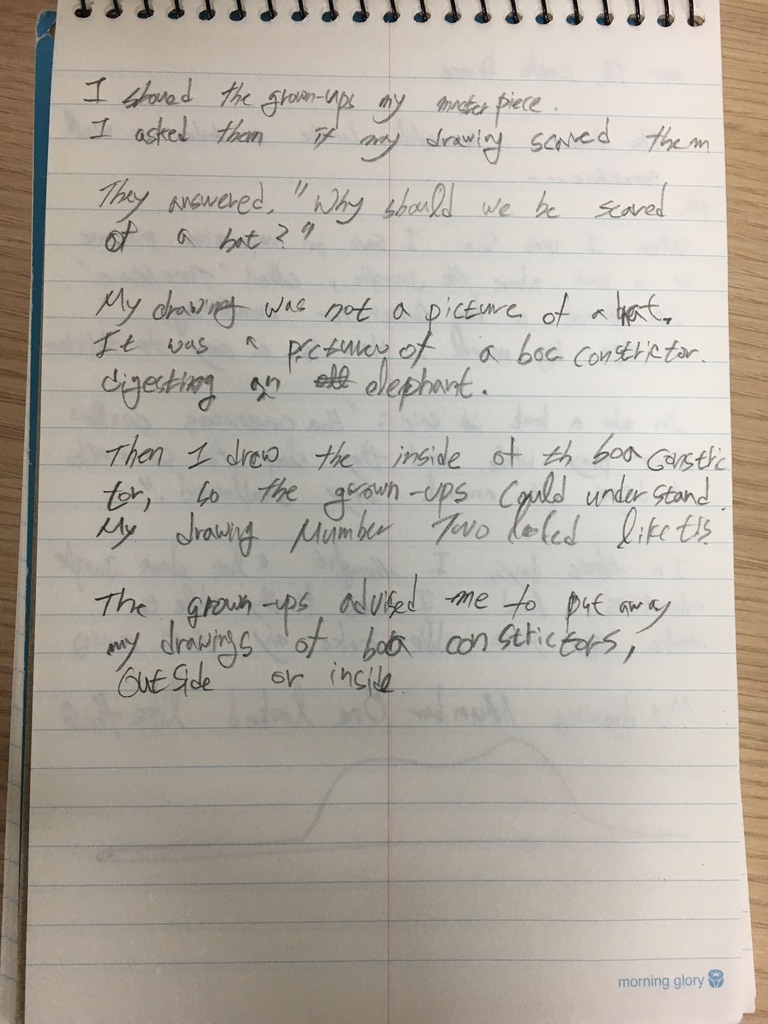 I showed the grown-ups my master piece.
I asked them if my drawing scared them
They answered, "Why should we be scared
of a hat?"
My drawing was not a picture of a hat.
It was a picture of a boa constrictor.
digesting an elephant.
Then I drew the inside of th boa constric
tor, so the grown-ups could understand.
My drawing Number Two looked like this
The grown-ups advised me to put away
my drawings of boa constrictors,
outside or inside.
morning glory